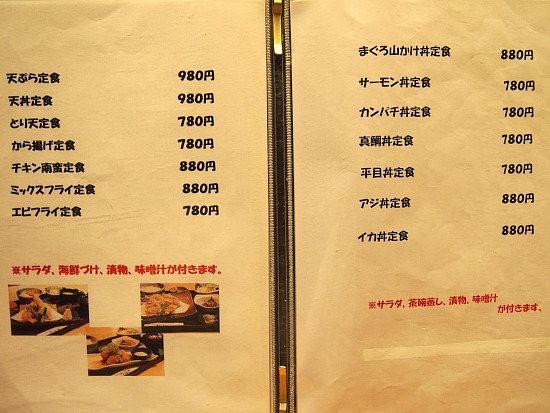 天ぷら定食 980円
天丼定食 980円
とり天定食 780円
から揚げ定食 780円
チキン南蛮定食 880円
ミックスフライ定食 880円
エビフライ定食 780円
※サラダ、海鮮づけ、漬物、味噌汁が付きます。
まぐろ山かけ丼定食 880円
サーモン丼定食 780円
カンパチ丼定食 780円
真鯛丼定食 780円
平目丼定食 780円
アジ丼定食 880円
イカ丼定食 880円
※サラダ、茶碗蒸し、漬物、味噌汁
が付きます。